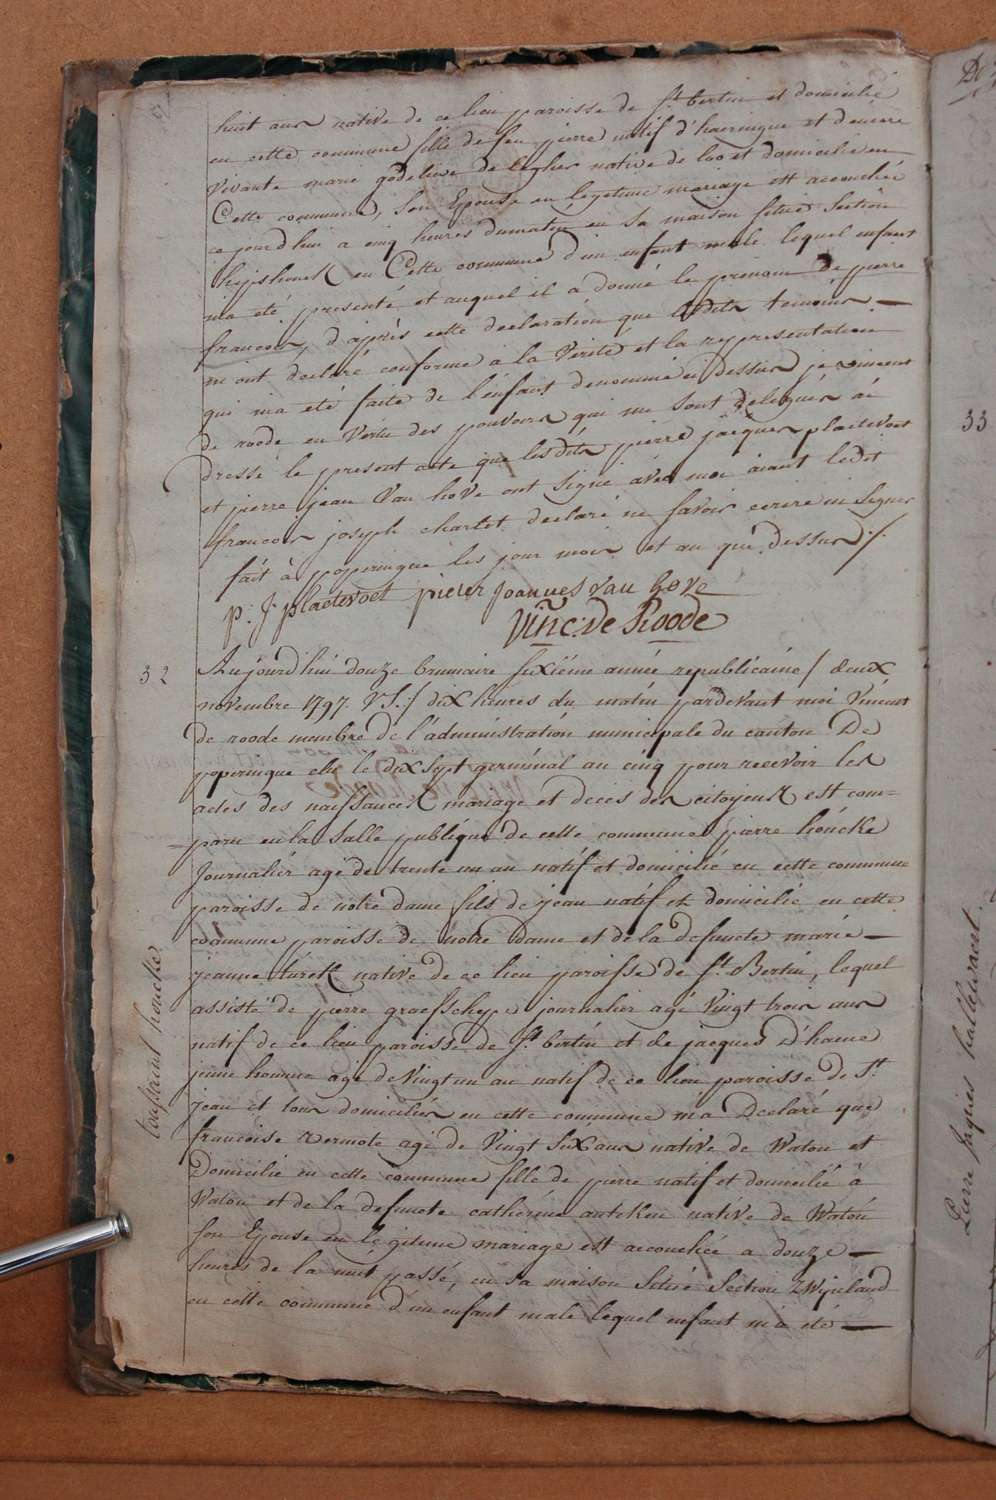 huit ans native de ce lieu paroisse de St bertin et domicilié
en cette commune fille de feu pierre natif d'haeringue et demeure
vivante marie godelieve de native de loo et domicilié en
Cette commune, Son Epouse en legitime mariage est accouchée
ce jourdhui a cinq heures du matin en Sa maison Sitiré Section
en Cette commune d'un enfant male lequel enfant
m'a été presenté et auquel il a donné le prenom De pierre
francois, d'après cette declaration que lesdits temoins —
m'ont declaré conforme à la Verité et la representation
qui m'a été faite de l'enfant denommé ci dessus je vincent
de roode en Vertu des pouvoirs qui me Sont délegués ai
dressé le present acte que lesdits pierre jacques plaetevoet
et pierre jean Van hove ont Signé avec moi aiant ledit
francois joseph charlet declaré ne savoir ecrire ni Signer
fait à poperingue les jour mois et an que dessus ./.
p: J: plaetevoet pieter Joannes van hove
Vinc: De Roode
32
Aujourd'hui douze brumaire Sixiéme année republicaine / deux
novembre 1797. V S: / dix heures du matin pardevant moi Vincent
de roode membre de l'administration municipale du canton De
poperingue elu le dix Sept germinal an cinq pour recevoir les
actes des naissances mariage et deces des citoyens est com=
=paru en la Salle publique de cette commune pierre houcke
Journalier agé de trente un an natif et domicilié en cette commune
paroisse de notre dame fils de jean natif et domicilié en cette
commune paroisse de notre Dame et de la defuncte marie —
jeanne turck native de ce lieu paroisse de St Bertin, lequel
assisté de pierre graefschepe journalier agé Vingt trois ans
natif de ce lieu paroisse de St bertin et de jacques D'haene
jeune homme agé de Vingt un an natif de ce lieu paroisse de St
jean et tous domiciliés en cette commune m'a Declaré que
francoise Dermote agé de Vingt Six ans native de Watou et
Domicilié en cette commune fille de pierre natif et domicilié à
Watou et de la defuncte catherine native de Watou
Son Epouse en Legitime mariage est accouchée a douze —
heures de la nuit passé, en sa maison Sitiré Section Zwijnland
en cette commune d'un enfant male lequel enfant m'a été —
toussaint houcke
33
Pierre Jaques hallewaert